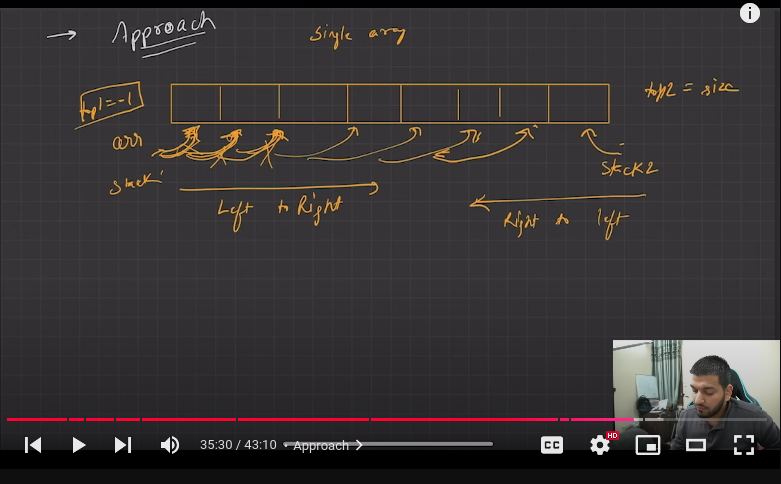 → Approach
Single array
top1=-1
top2 = size
arr
Stack1
Stack2
Left to Right
Right to left
35:30 / 43:10 • Approach >
CC
HD
i